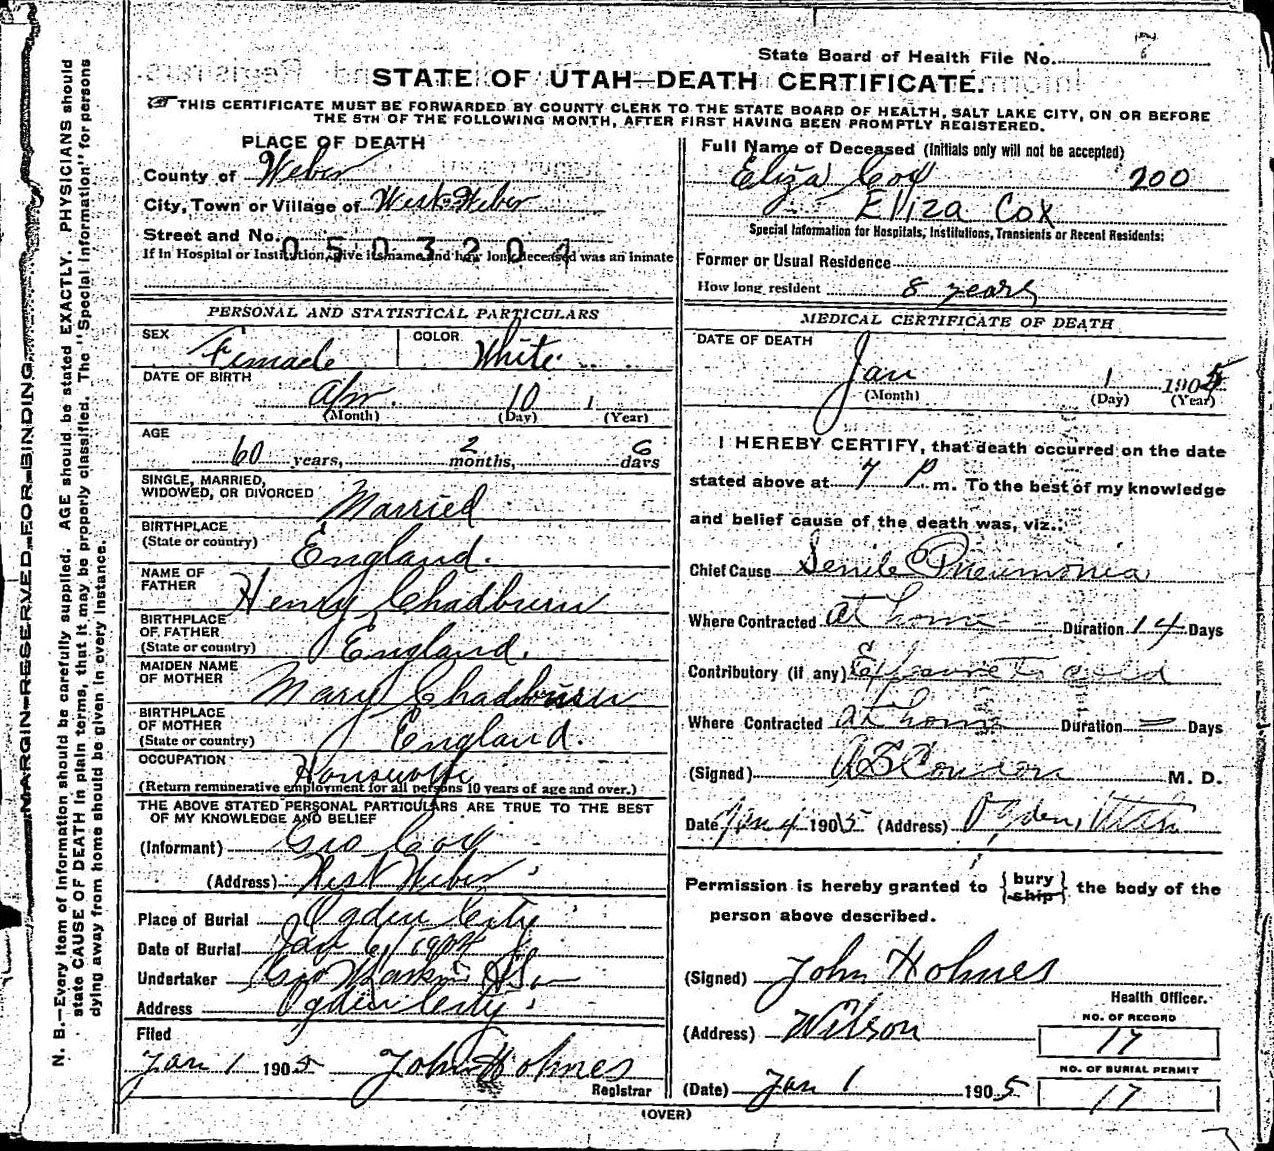 State Board of Health File No. 7
STATE OF UTAH—DEATH CERTIFICATE.
THIS CERTIFICATE MUST BE FORWARDED BY COUNTY CLERK TO THE STATE BOARD OF HEALTH, SALT LAKE CITY, ON OR BEFORE
THE 5TH OF THE FOLLOWING MONTH, AFTER FIRST HAVING BEEN PROMPTLY REGISTERED.
MARGIN—RESERVED—FOR—BINDING
N. B.—Every item of Information should be carefully supplied. AGE should be stated EXACTLY. PHYSICIANS should
state CAUSE OF DEATH in plain terms, that it may be properly classified. The "Special Information" for persons
dying away from home should be given in every instance.
PLACE OF DEATH
County of Weber
City, Town or Village of West Weber
Street and No.
0503204
If in Hospital or Institution, give its name and how long deceased was an inmate
PERSONAL AND STATISTICAL PARTICULARS
SEX Female COLOR White
DATE OF BIRTH
Apr. 10 1
(Month) (Day) (Year)
AGE
60 years, 2 months, 6 days
SINGLE, MARRIED,
WIDOWED, OR DIVORCED Married
BIRTHPLACE
(State or country) England.
NAME OF
FATHER Henry Chadburn
BIRTHPLACE
OF FATHER
(State or country) England.
MAIDEN NAME
OF MOTHER Mary Chadburn
BIRTHPLACE
OF MOTHER
(State or country) England.
OCCUPATION Housewife
(Return remunerative employment for all persons 10 years of age and over.)
THE ABOVE STATED PERSONAL PARTICULARS ARE TRUE TO THE BEST
OF MY KNOWLEDGE AND BELIEF
(Informant) Geo Cox
(Address) West Weber
Place of Burial Ogden City
Date of Burial Jan 6/1904
Undertaker Geo
Address Ogden City
Filed
Jan 1 1905 John Holmes
Registrar
Full Name of Deceased (Initials only will not be accepted)
Eliza Cox 200
Eliza Cox
Special Information for Hospitals, Institutions, Transients or Recent Residents:
Former or Usual Residence
How long resident 8 years
MEDICAL CERTIFICATE OF DEATH
DATE OF DEATH
Jan 1 1905
(Month) (Day) (Year)
I HEREBY CERTIFY, that death occurred on the date
stated above at 7 P. m. To the best of my knowledge
and belief cause of the death was, viz.:
Chief Cause Senile Pneumonia
Where Contracted at home Duration 14 Days
Contributory (if any) Exposure to cold
Where Contracted at home Duration — Days
(Signed) A S Condon M. D.
Date Jan 4 1905 (Address) Ogden, Utah
Permission is hereby granted to {bury ship} the body of the
person above described.
(Signed) John Holmes
Health Officer.
(Address) Wilson
NO. OF RECORD
17
NO. OF BURIAL PERMIT
17
(Date) Jan 1 1905
(OVER)